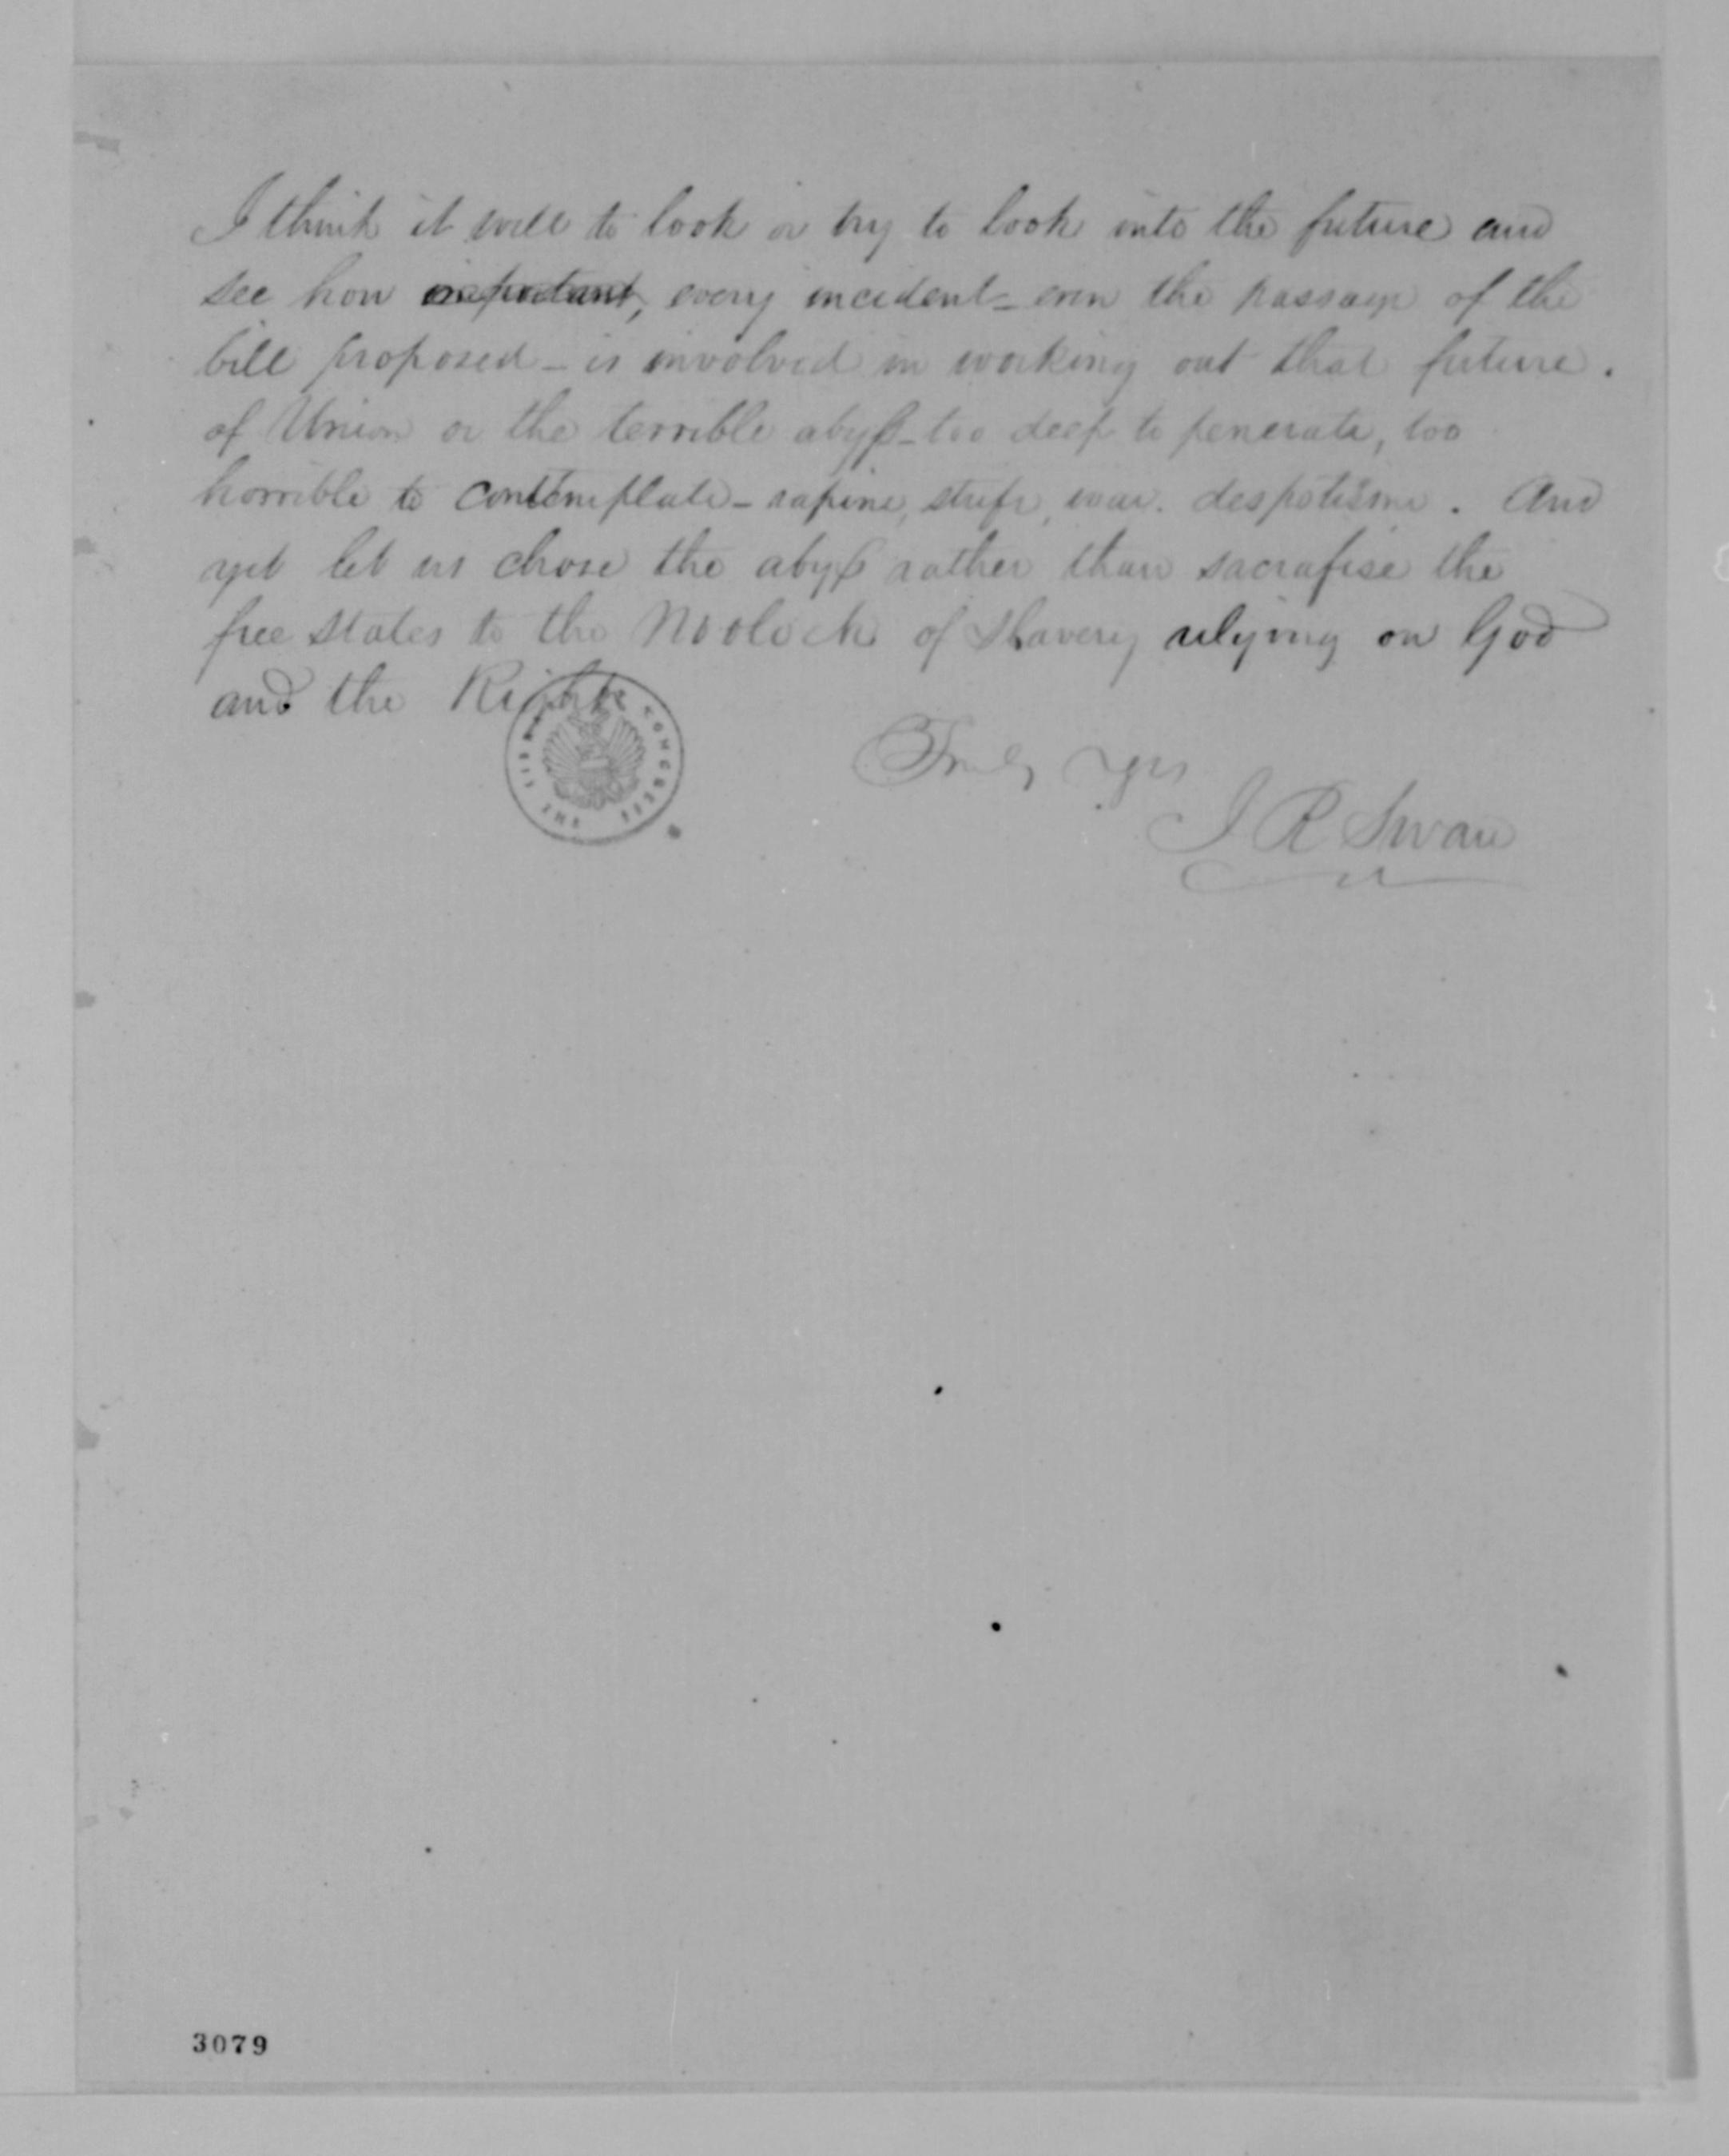 I think it well to look or try to look into the future and
see how important, every incident – even the passage of the
bill proposed – is involved in working out that future.
of Union or the terrible abyss – too deep to penerate, too
horrible to contemplate – rapine, strife, war. despotism. And
yet let us chose the abyss rather than sacrafise the
free states to the Moolock of Slavery relying on God
and the Right
THE LIBRARY CONGRESS
Truly Yrs
J R Swan
3079